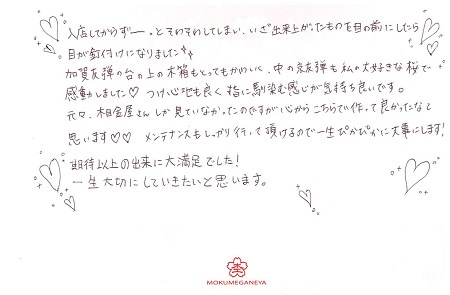 入店してからずーーっとそわそわしてしまい、いざ出来上がったものを目の前にしたら
目が釘付けになりました
加賀友禅の台の上の木箱もとってもかわいく、中の友禅も私の大好きな桜で
感動しました♡ つけ心地も良く指に馴染む感じが気持ち良いです。
元々、杢目金屋さんしか見ていなかったのですが心からこちらで作って良かったなと
思います♡♡ メンテナンスもしっかり行って頂けるので一生ぴかぴかに大事にします!
期待以上の出来に大満足でした!
一生大切にしていきたいと思います。
MOKUMEGANEYA